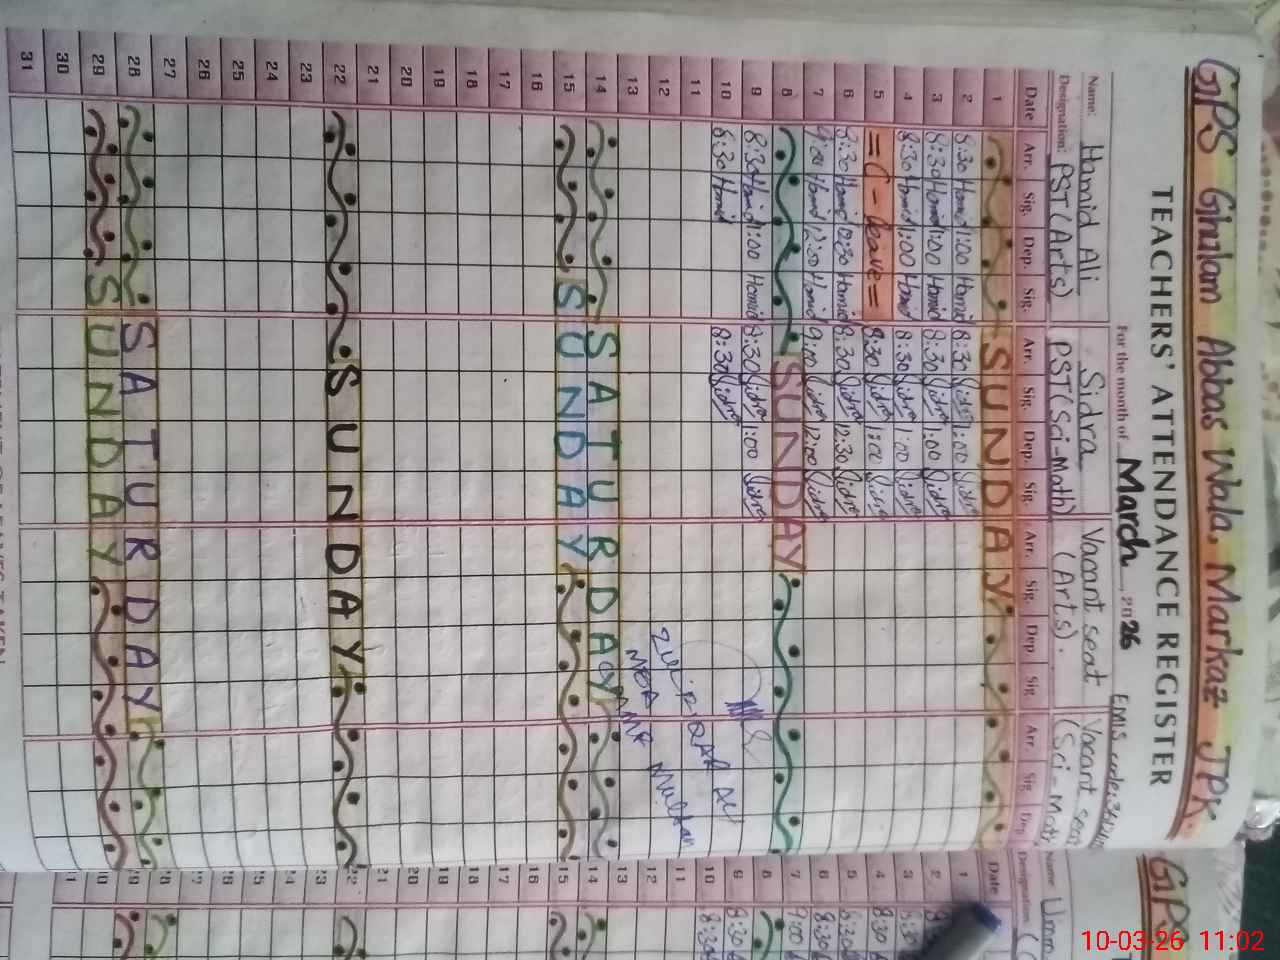 GPS Ghulam Abbas Wala, Markaz JPK.
TEACHERS' ATTENDANCE REGISTER
For the month of March 2026 EMIS code:
Name: Hamid Ali Sidra Vacant seat Vacant seat
Designation: PST(Arts) PST(Sci-Math) (Arts). (Sci-Math
Date Arr. Sig. Dep. Sig. Arr. Sig. Dep. Sig. Arr. Sig. Dep Sig Arr. Sig Dep
1 SUNDAY
2 8:30 Hamid 1:00 Hamid 8:30 Sidra 1:00 Sidra
3 8:30 Hamid 1:00 Hamid 8:30 Sidra 1:00 Sidra
4 8:30 Hamid 1:00 Hamid 8:30 Sidra 1:00 Sidra
5 = C - leave = 8:30 Sidra 1:00 Sidra
6 8:30 Hamid 12:30 Hamid 8:30 Sidra 12:30 Sidra
7 9:00 Hamid 12:00 Hamid 9:00 Sidra 12:00 Sidra
8 SUNDAY
9 8:30 Hamid 1:00 Hamid 8:30 Sidra 1:00 Sidra
10 8:30 Hamid 8:30 Sidra
11
12
13
14 SATURDAY
15 SUNDAY
16
17
18
19
20
21
22 SUNDAY
23
24
25
26
27
28 SATURDAY
29 SUNDAY
30
31
ZULFIQAR ALI
MEA
Multan
GPS
Name Umm
Designation
Date
1
2
3
4 8:30
5 8:30
6 8:30
7 9:00
8
9 8:30
10 8:30
11
12
13
14
15
16
17
18
19
20
21
22
23
24
25
26
27
28
29
10-03-26 11:02